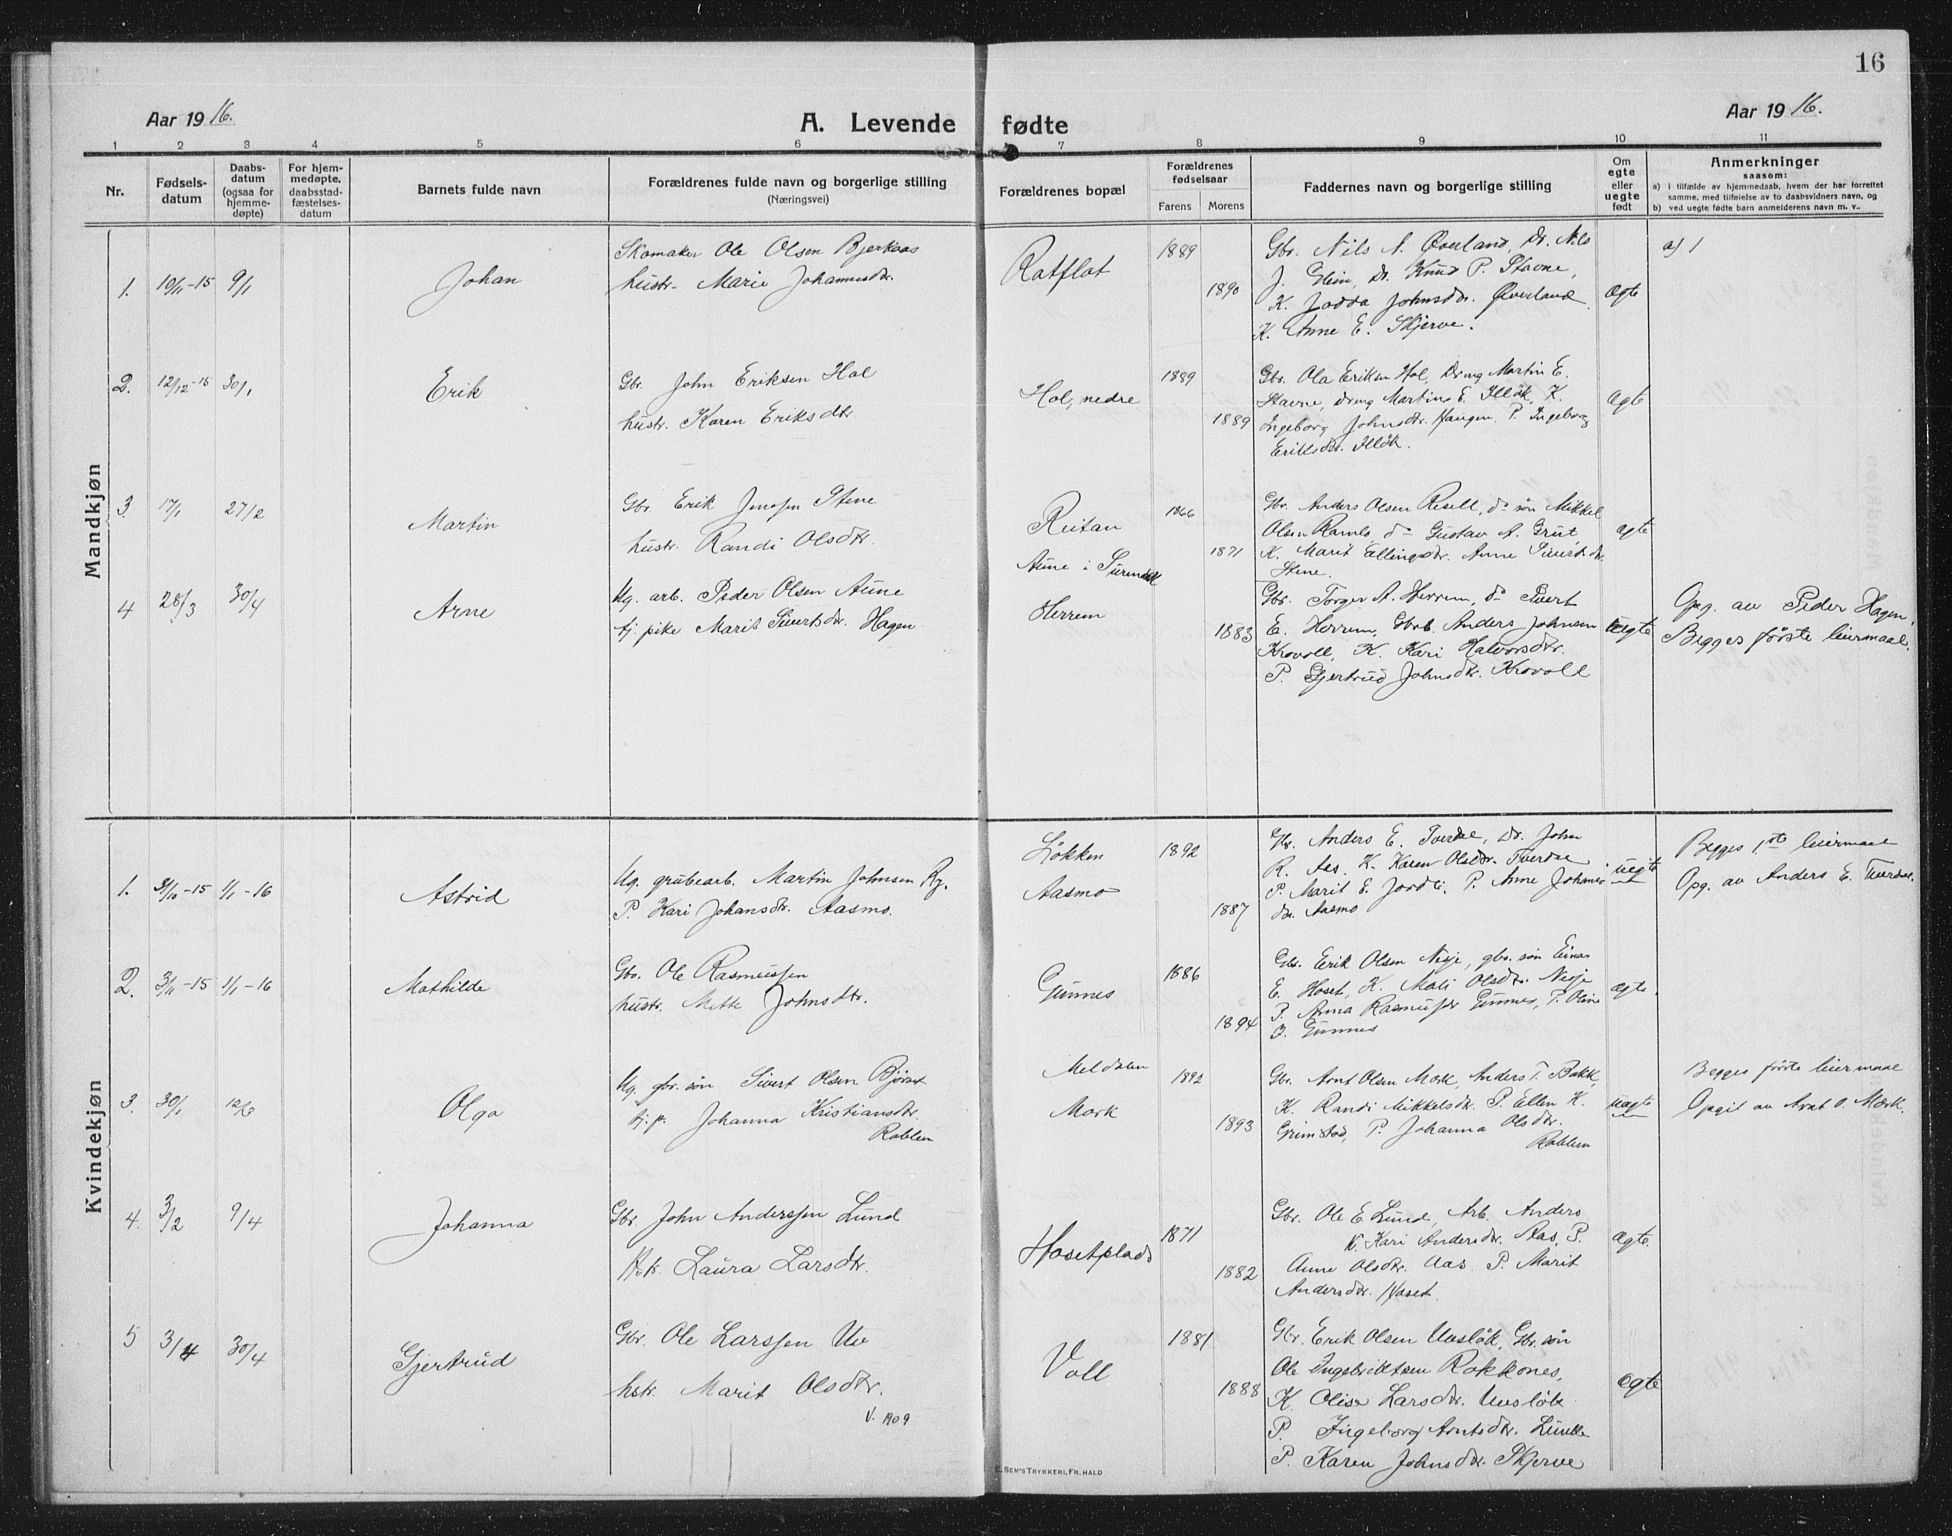 16
Aar 1916.
A. Levende fødte
Aar 1916.
1 2 3 4 5 6 7 8 9 10 11
Nr.
Fødsels-
datum
Daabs-
datum
(ogsaa for
hjemme-
døpte)
For hjem-
medøpte,
daabsstad-
fæstelses-
datum
Barnets fulde navn
Forældrenes fulde navn og borgerlige stilling
(Næringsvei)
Forældrenes bopæl
Forældrenes
fødselsaar
Farens Morens
Faddernes navn og borgerlige stilling
Om
egte
eller
uegte
født
Anmerkninger
saasom:
a) i tilfælde av hjemmedaab, hvem der har forrettet
samme, med tilføielse av to daabsvidners navn, og
b) ved uegte fødte barn anmelderens navn m. v..
Mandkjøn
1. 10/11-15 9/1 Johan
Skomaker Ole Olsen Bjerkaas
hustr. Marie Johannesdtr.
Ratflot
1889
1890
Gbr. Nils N. Øverland, Dr. Nils
J. Glim, Dr. Knud P. Stavne,
K. Jodda Johnsdtr. Øverland
K. Anne E. Skjerve.
Ægte
a) 1
2. 12/12-15 30/1 Erik
Gbr. John Eriksen Hol
hustr. Karen Eriksdtr
Hol, nedre
1889
1889
Gbr. Ola Eriksen Hol, Dreng Martin E.
Stavne, dreng Martinus E. Illøk, K.
Ingeborg Johnsdtr. Haugen P. Ingeborg
Eriksdtr. Illøk.
Ægte
3. 17/1 27/2 Martin
Gbr. Erik Jensen Stene
hustr. Randi Olsdtr.
Reitan
1866
1871
Gbr. Anders Olsen Resell, do søn Mikkel
Olsen Ramlo, do Gustav A. Grut
K. Marit Ellingsdtr. Anne Sivertsdtr.
Stene.
ægte
4 28/3 30/4 Arne
Ug. arb. Peder Olsen Aune
tj. pike Marit Sivertsdtr. Hagen
Aune i Surendal
Herrem
1883
Gbr. Torger A. Herrem, do Sivert
E. Herrem, Gbr. Anders Johnsen
Krovoll, K. Kari Halvorsdtr.
P. Gjertrud Johnsdtr. Krovoll
Uegte
Opg. av Peder Hagen.
Begges første leiermaal.
Kvindekjøn
1. 31/10-15 1/1-16 Astrid
Ug. grubearb. Martin Johnsen Ry.
P. Kari Johansdtr. Aasmo.
Løkken
Aasmo
1892
1887
Gbr. Anders E. Tverdal, Dr. John
R. Aas. K. Karen Olsdtr. Tverdal
P. Marit E. Jordli. P. Anne Johans
dtr. Aasmo
uegte
Begges 1ste leiermaal
Opg. av Anders E. Tverdal.
2. 3/11-15 1/1-16 Mathilde
Gbr. Ole Rasmussen
hustr. Mette Johnsdtr.
Gunnes
1886
1894
Gbr. Erik Olsen Nisje, gbr. søn Einar
E. Hoset, K. Mali Olsdtr. Nisje
P. Anna Rasmusdtr Gunnes, P. Oline
J. Gunnes
ægte.
3. 30/1 12/3 Olga
Ug. gbr. søn Sivert Olsen Bjøraa
tj. p. Johanna Kristiansdtr.
Roblem
Meldalen
Mork
1892
1893
Gbr. Arnt Olsen Mork, Anders T. Bakk,
K. Randi Mikkelsdtr. P. Ellen K.
Grimstad, P. Johanna Olsdtr.
Roblem
uægte
Begges første leiermaal
Opgit av Arnt O. Mork.
4. 3/2 9/4 Johanna
Gbr. John Anderssen Lund
Hstr. Laura Larsdtr.
Hosetplads
1871
1882
Gbr. Ole E. Lund, Arb. Anders
K. Kari Andersdtr. Aas, P.
Anne Olsdtr. Aas P. Marit
Andersdtr. Hoset.
ægte.
5 3/4 30/4 Gjertrud
Gbr. Ole Larssen Uv
hstr. Marit Olsdtr.
V. 1909
Voll
1881
1888
Gbr. Erik Olsen Uvsløk, Gbr. søn
Ole Ingebriktsen Rokkones,
K. Olise Larsdtr. Uvsløk
P. Ingeborg Arntsdtr. Lunde
P. Karen Johnsdtr. Skjerve
ægte
E. SEM'S TRYKKERI, FR. HALD